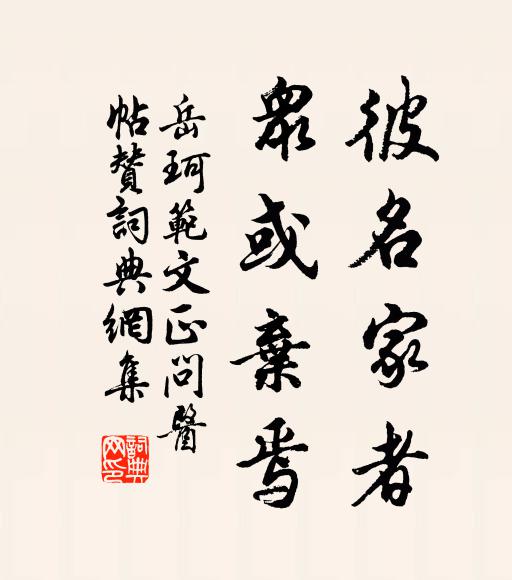 彼名家者
眾或棄焉
岳珂範文正問醫
帖贊詞典網集
詞典
网印